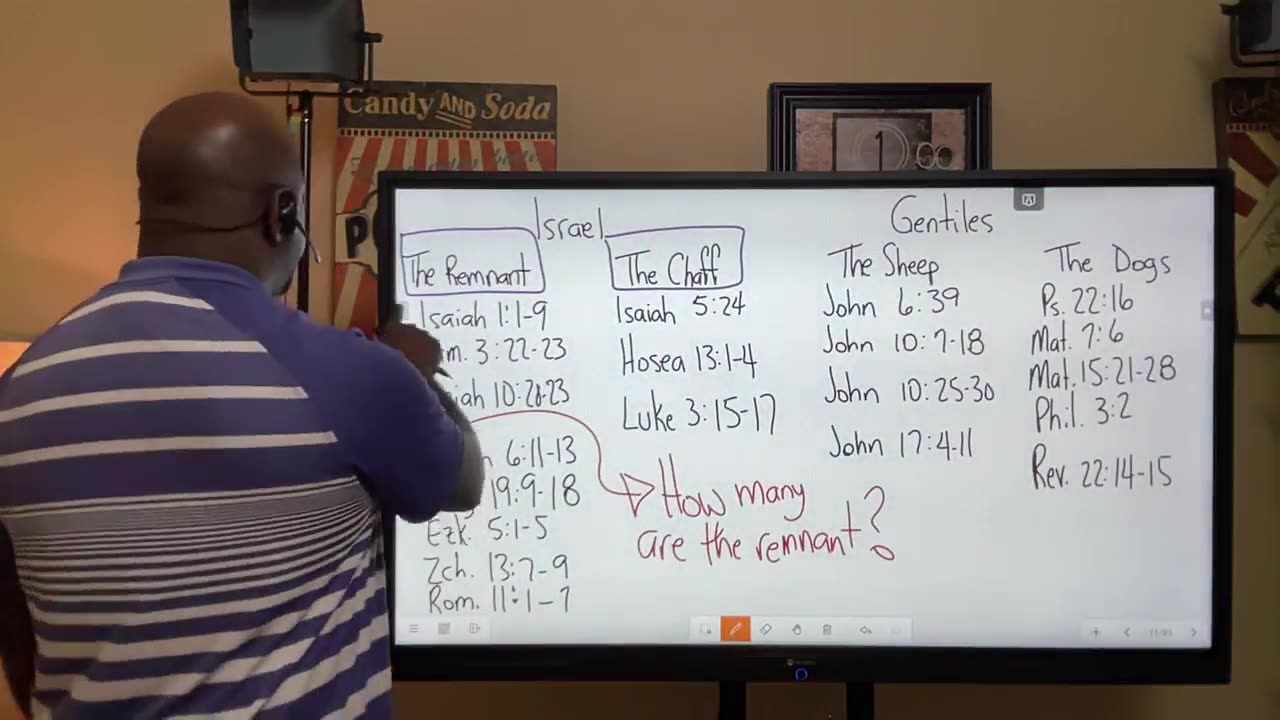 Candy AND Soda
1
Israel
Gentiles
The Remnant
Isaiah 1:1-9
3:22-23
10:20-23
6:11-13
19:9-18
Ezk. 5:1-5
Zch. 13:7-9
Rom. 11:1-7
The Chaff
Isaiah 5:24
Hosea 13:1-4
Luke 3:15-17
How many
are the remnant?
The Sheep
John 6:39
John 10:7-18
John 10:25-30
John 17:4-11
The Dogs
Ps. 22:16
Mat. 7:6
Mat. 15:21-28
Phil. 3:2
Rev. 22:14-15